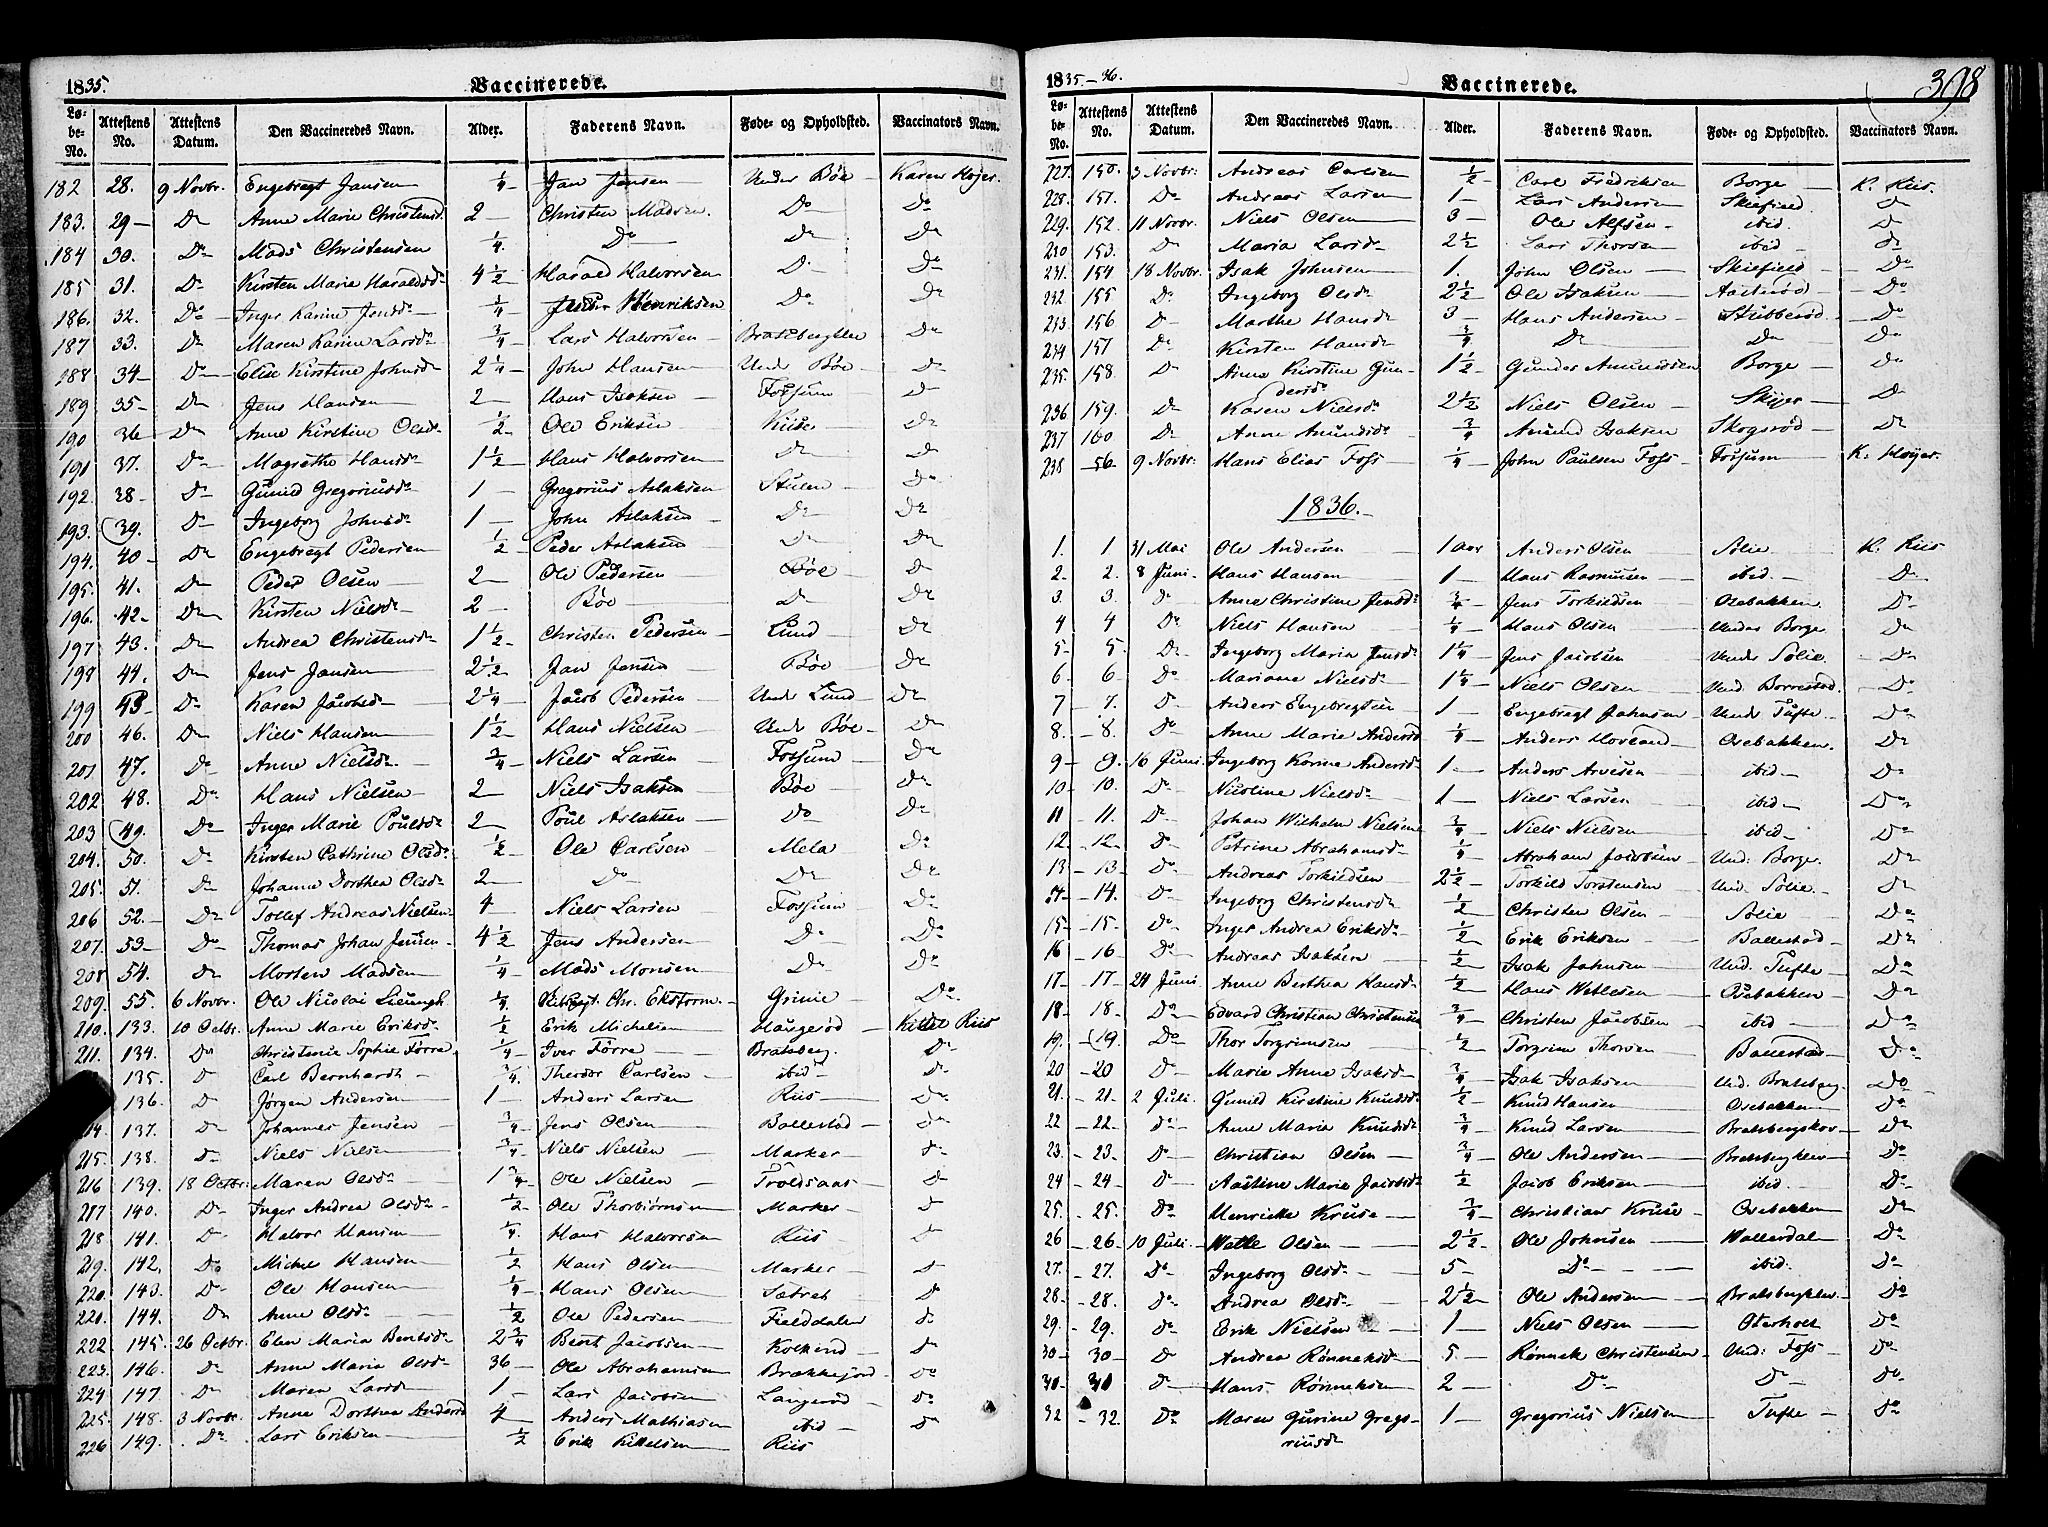 1835. Vaccinerede.
Lø-be-No. Attestens No. Attestens Datum. Den Vaccineredes Navn. Alder. Faderens Navn. Føde- og Opholdsted. Vaccinators Navn.
182 28. 9 Novbr. Engebregt Jansen 1/4 Jan Jensen Under Böe Karen Höjer
183. 29 Do Anne Marie Christensd. 2 Christen Madsen. Do Do
184 30. Do Mads Christensen 1/4 Do Do Do
185 31. Do Kirsten Marie Haraldsd 4 1/2 Harald Halvorsen Do Do
186. 32. Do Inger Karine Jensd 1/4 Henriksen Do Do
187 33. Do Maren Karine Larsd 3/4 Lars Halvorsen Bratsbergklev Do
188 34 Do Elise Kirstine Johnsd 2 1/4 John Hansen Und Böe Do
189 35 Do Jens Hansen 2 Hans Isaksen Fossum Do
190 36 Do Anne Kirstine Olsd 1/2 Ole Eriksen Kise Do
191 37. Do Magrethe Hansd 1 1/2 Hans Halvorsen Do Do
192 38 Do Gunild Gregoriusd 1 Gregorius Aslaksen Stulen Do
193. 39. Do Ingeborg Johnsd 1 John Aslaksen Do Do
194. 40 Do Engebregt Pedersen 1/2 Peder Aslaksen Do Do
195. 41. Do Peder Olsen 2 Ole Pedersen Böe Do
196. 42 Do Kirsten Nielsd 2 Böe Do Do
197 43. Do Andrea Christensd 1 1/2 Christen Pedersen Lund Do
198 44. Do Jens Jansen 2 1/2 Jan Jansen Böe Do
199 45 Do Karen Jacobsd 2 1/4 Jacob Pedersen Und Lund Do
200 46. Do Niels Hansen 1 1/2 Hans Nielsen Und Böe Do
201 47. Do Anne Nielsd 3/4 Niels Larsen Fossum Do
202 48. Do Hans Nielsen 2 Niels Isaksen Böe Do
203 49. Do Inger Marie Poulsd 2 Poul Aslaksen Do Do
204. 50. Do Kirsten Cathrine Olsd 1/2 Ole Carlsen Mela Do
205. 51. Do Johanne Dorthea Olsd 2 Do Do Do
206 52. Do Tollef Andreas Nielsen 4 Niels Larsen Fossum Do
207. 53 Do Thomas Johan Jensen 4 1/2 Jens Andersen Do Do
208 54. Do Morten Madsen 1/4 Mads Monsen Do Do
209. 55. 6 Novbr. Ole Nicolai 1/4 Chr. Ekstorm Grinie Do
210. 133. 10 Octbr. Anne Marie Eriksd 1/2 Erik Michelsen Haugeröd Kittel Riis
211. 134. Do Christine Sophie Törre 1/4 Iver Törre Bratsberg. Do
135. Do Carl Bernhardt 3/4. Theodor Carlsen ibid Do
136. Do Jörgen Andersen 1 Anders Larsen Riis Do
214. 137. Do Johannes Jensen 3/4 Jens Olsen Ballestad Do
215. 138. Do Niels Nielsen 3/4 Niels Nielsen Marker Do
216 139. 18 Octbr. Maren Olsd 1 3/4 Ole Nielsen Troldsaas Do
217 140. Do Inger Andrea Olsd 1/2 Ole Thorbiörnsen Marker Do
218 141. Do Halvor Hansen 1/4. Hans Halvorsen Riis Do
219. 142. Do Michel Hansen 1/2 Hans Olsen Marker Do
220. 143. Do Ole Hansen 1/4 Hans Olsen Do
221. 144. Do Anne Olsd 1/2 Ole Pedersen Fielddalen Do
222 145. 26 Octbr. Elen Maria Bentsd 2 3/4 Bent Jacobsen Do
223. 146. Do Anne Maria Olsd 36 Ole Abrahamsen Brækkejord Do
224 147 Do Maren Larsd 1 Lars Jacobsen Langeröd Do
225. 148. 3 Novbr. Anne Dorthea Andersd 4 Anders Mathiasen ibid Do
226 149. Do Lars Eriksen 1/2 Erik Kittelsen Riis
1835.-36. Vaccinerede. 398
Lø-be-No. Attestens No. Attestens Datum. Den Vaccineredes Navn. Alder. Faderens Navn. Føde- og Opholdsted. Vaccinators Navn.
227. 150. 3 Novbr. Andreas Carlsen 1/2 Carl Fredriksen Borge K. Riis.
228. 151. Do Andreas Larsen 1 Lars Andersen Skiefield Do
229. 152. 11 Novbr. Niels Olsen 3 Ole Alfsen ibid. Do
230 153. Do Maria Larsd 2 1/2 Lars Thorsen ibid Do
231. 154 18 Novbr. Isak Johnsen 1. John Olsen Skiefield Do
232 155 Do Ingeborg Olsd 2 1/2 Ole Isaksen Aastveod Do
233. 156 Do Marthe Hansd 3 Hans Andersen Stibberöd Do
234 157 Do Kirsten Hansd 3/4 Do Do Do
235. 158. Do Anne Kirstine Gun- 1 1/2 Gunder Amundsen Borge Do
dersd
236 159. Do Karen Nielsd 2 1/2 Niels Olsen Skijer Do
237 160 Do Anne Amundsd 3/4 Amund Isaksen Skogsröd Do
238 56 9 Novbr. Hans Elias Foss 1/4 John Paulsen Foss Fossum K. Höyer.
1836.
1. 1 31 Mai Ole Andersen 1 aar Anders Olsen Solie K. Riis
2 2. 8 Juni Hans Hansen 1 Hans Rasmusen ibid. Do
3. 3. Do Anne Christine Jensd 3/4 Jens Torkildsen Osebakken Do
4 4 Do Niels Hansen 1/4 Hans Olsen Under Borge Do
5 5. Do Ingeborg Maria Jensd 1 1/4 Jens Jacobsen Under Solie Do
6 6 Do Mariane Nielsd 1 1/4 Niels Olsen Und. Borrestad Do
7 7. Do Anders Engebregtsen 1 Engebregt Johnsen Und Tufte Do
8. 8. Do Anne Marie Andersd 1/4 Anders Hovland Osebakken Do
9 9. 16 Juni Ingeborg Karine Andersd 1 Anders Arvesen ibid Do
10 10. Do Nicoline Nielsd 1 Niels Larsen ibid Do
11 11. Do Johan Wilhelm Nielsen 3/4 Niels Nielsen ibid Do
12. 12 Do Petrine Abrahamsd 1/4 Abraham Jacobsen Und. Borge. Do
13 13 Do Andreas Torkildsen 2 1/2 Torkild Torstensen Und. Solie Do
14 14. Do Ingeborg Christensd 1/2 Christen Olsen Solie Do
15 15. Do Inger Andrea Eriksd 1/2 Erik Eriksen Ballestad Do
16 16 Do Andreas Isaksen 1/2 Isak Johnsen Und. Tufte Do
17 17 24 Juni Anne Berthea Hansd 1/2 Hans Wetlesen Osebakken Do
18 18. Do Edvard Christian Christensen 3/4 Christen Jacobsen ibid Do
19. 19. Do Thor Torgrimsen 1/2 Torgrim Thorsen Ballestad Do
20 20 Do Marie Anne Isaksd 3/4 Isak Isaksen Und. Bratsberg Do
21. 21 2 Juli. Gunild Kirstine Knudsd 1/2 Knud Hansen Osebakken Do
22 22. Do Anne Maria Knudsd 3/4 Knud Larsen Bratsbergskov Do
23. 23. Do Christian Olsen 3/4 Ole Andersen Bratsbergklev Do
24 24 Do Aastine Marie Jacobsd 1/2 Jacob Eriksen ibid. Do
25. 25. Do Henriette Kruse 3/4 Christian Kruse Osebakken Do
26 26 10 Juli. Wetle Olsen 2 1/2 Ole Johnsen Wallerdal Do
27. 27. Do Ingeborg Olsd 5 Do ibid. Do
28. 28. Do Andrea Olsd 2 1/2 Ole Andersen Bratsbergklev Do
29. 29. Do Erik Nielsen 1 Niels Olsen Oterholt Do
30 30 Do Andrea Rönneksd 5 Rönnek Christensen Und: Foss Do
Do Hans Rönneksen 2 Do Do Do
32 32. Do Maren Gurine Grego- 1 Gregorius Nielsen Tufte Do
riusd